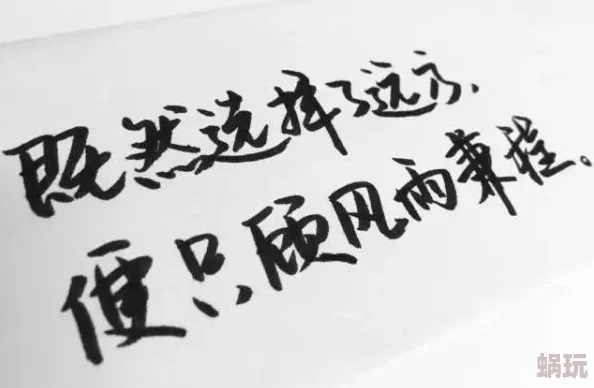 既然选择了远方，
便只顾风雨兼程。
蜗玩